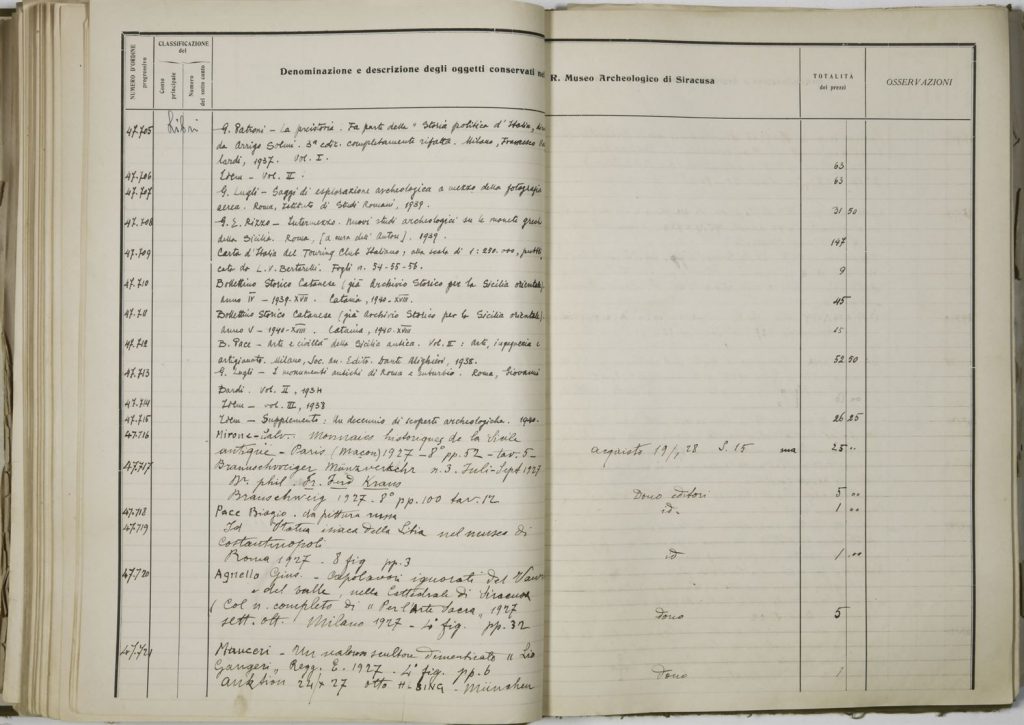 NUMERO D'ORDINE progressivo
CLASSIFICAZIONE del
Conto principale
Numero del sotto conto
Denominazione e descrizione degli oggetti conservati nel R. Museo Archeologico di Siracusa
TOTALITÀ dei prezzi
OSSERVAZIONI
47.705 Libri G. Patroni - La preistoria. Fa parte della "Storia politica d'Italia,
da Arrigo Solmi. 3ª ediz. completamente rifatta. Milano, Francesco
lardi, 1937. Vol. I. 63
47.706 Idem - Vol. II. 63
47.707 G. Lugli - Saggi di esplorazione archeologica a mezzo della fotografia
aerea. Roma, Istituto di Studi Romani, 1939. 31 50
47.708 G. E. Rizzo - Intermezzo. Nuovi studi archeologici su le monete greche
della Sicilia. Roma, [a cura dell'Autore]. 1939. 147
47.709 Carta d'Italia del Touring Club Italiano; alla scala di 1:250.000, pubbli
cata da L. V. Bertarelli. Fogli n. 54-55-56. 9
47.710 Bollettino Storico Catanese (già Archivio Storico per la Sicilia orientale).
Anno IV - 1939-XVII. Catania, 1940-XVIII. 45
47.711 Bollettino Storico Catanese (già Archivio Storico per la Sicilia orientale).
Anno V - 1940-XVIII. Catania, 1940-XVIII 15
47.712 B. Pace - Arte e civiltà della Sicilia antica. Vol. II: Arte, ingegneria e
artigianato. Milano, Soc. An. Edit. Dante Alighieri, 1938. 52 50
47.713 G. Lugli - I monumenti antichi di Roma e suburbio. Roma, Giovanni
Bardi. Vol. II, 1934
47.714 Idem - vol. III, 1938
47.715 Idem - Supplemento: Un decennio di scoperte archeologiche. 1940. 26 25
47.716 Mirone Salv. Monnaies historiques de la Sicile
antique - Paris (Macon) 1927 - 8° pp. 52 - tav. 5 - 25
47.717 Braunschweiger Münzverkehr n. 3. Juli-Sept 1927
Dr. phil. Fr. Ferd Kraus
Braunschweig 1927 - 8° pp. 100 tav. 12 Dono editori 5
47.718 Pace Biagio. da pittura id. 1
47.719 Id Statua della Libia nel museo di
Costantinopoli
Roma 1927 - 8 fig pp. 3 id 1
47.720 Agnello Gius. - Capolavori ignorati del
e del Valle, nella Cattedrale di Siracusa
(Col n. completo di "Per l'Arte Sacra" 1927
sett. ott. Milano 1927 - 4° fig. pp. 32 Dono 5
47.721 Mauceri - Un valoroso scultore dimenticato "Lio
Gangeri" Regg. E. 1927 - 4° fig. pp. 6 Dono 1
27 otto H-BING - München